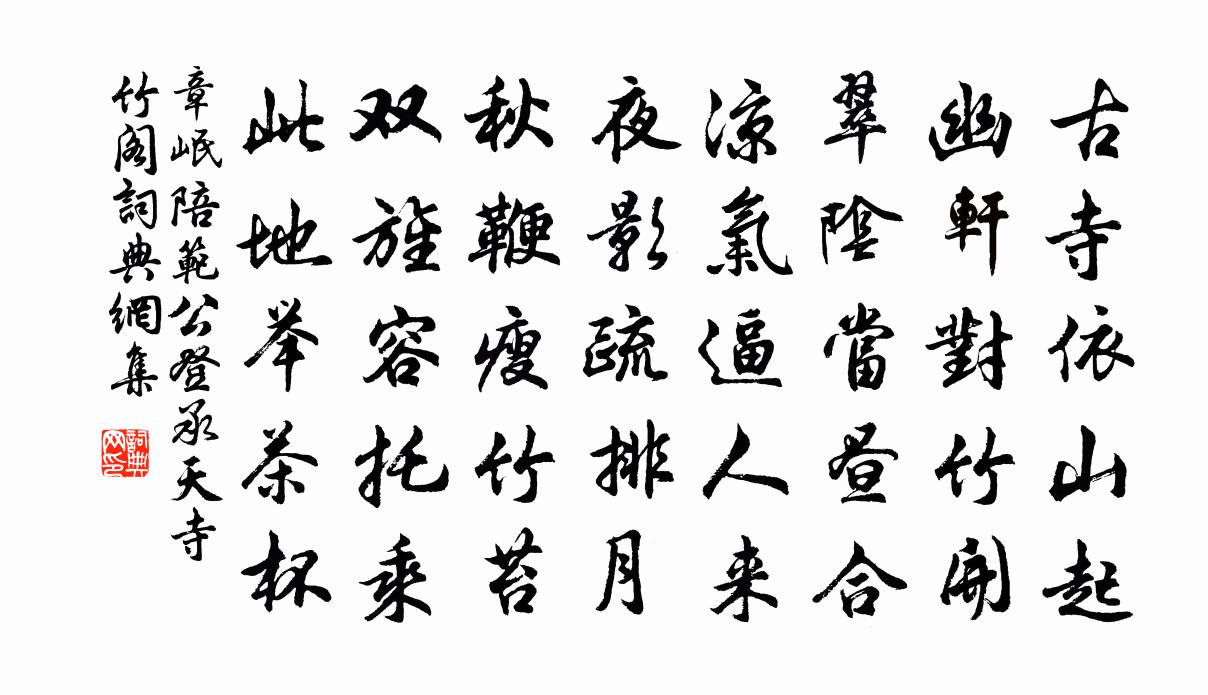 古寺依山起
幽軒對竹開
翠陰當昼合
涼氣逼人来
夜影疏排月
秋鞭瘦竹苔
双旌容托乘
此地举茶杯
章岷陪範公登承天寺
竹阁詞典網集
詞典
网印